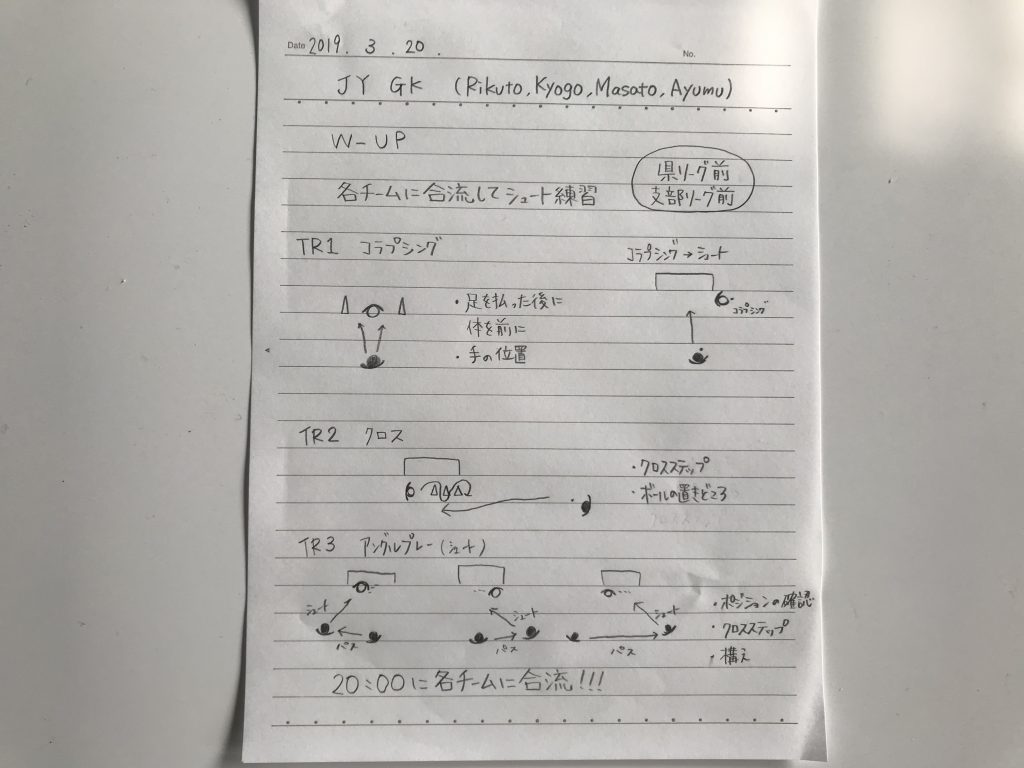 Date 2019. 3. 20. No.
JY GK (Rikuto, Kyogo, Masato, Ayumu)
W-UP
各チームに合流してシュート練習
県リーグ前
支部リーグ前
TR1 コラプシング
・足を払った後に
体を前に
・手の位置
コラプシング→シュート
コラプシング
TR2 クロス
・クロスステップ
・ボールの置きどころ
TR3 アングルプレー(シュート)
シュート
パス
シュート
パス
シュート
パス
・ポジションの確認
・クロスステップ
・構え
20:00に各チームに合流!!!